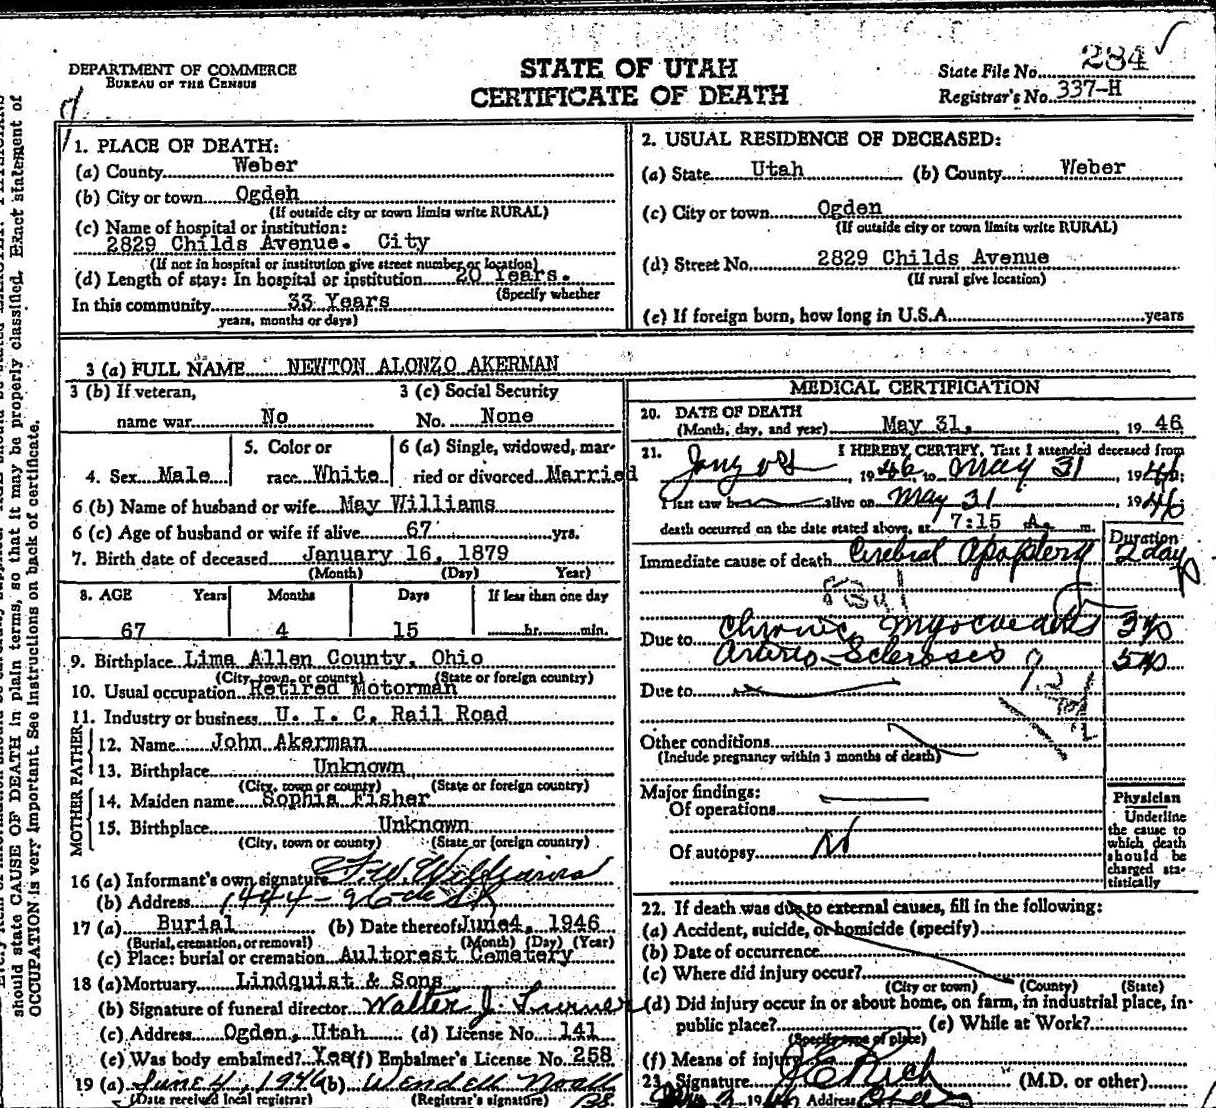 DEPARTMENT OF COMMERCE
BUREAU OF THE CENSUS
STATE OF UTAH
CERTIFICATE OF DEATH
State File No. 284
Registrar's No. 337-H
should state CAUSE OF DEATH in plain terms, so that it may be properly classified. Exact statement of
OCCUPATION is very important. See instructions on back of certificate.
1. PLACE OF DEATH:
(a) County Weber
(b) City or town Ogden
(If outside city or town limits write RURAL)
(c) Name of hospital or institution:
2829 Childs Avenue. City
(If not in hospital or institution give street number or location)
(d) Length of stay: In hospital or institution 20 Years.
(Specify whether
In this community 33 Years
years, months or days)
2. USUAL RESIDENCE OF DECEASED:
(a) State Utah (b) County Weber
(c) City or town Ogden
(If outside city or town limits write RURAL)
(d) Street No. 2829 Childs Avenue
(If rural give location)
(e) If foreign born, how long in U.S.A. years
3 (a) FULL NAME NEWTON ALONZO AKERMAN
3 (b) If veteran, 3 (c) Social Security
name war No No. None
5. Color or 6 (a) Single, widowed, mar-
4. Sex Male race White ried or divorced Married
6 (b) Name of husband or wife May Williams
6 (c) Age of husband or wife if alive 67 yrs.
7. Birth date of deceased January 16, 1879
(Month) (Day) Year)
8. AGE Years Months Days If less than one day
67 4 15 hr. min.
9. Birthplace Lima Allen County, Ohio
(City, town, or county) (State or foreign country)
10. Usual occupation Retired Motorman
11. Industry or business U. I. C. Rail Road
FATHER
12. Name John Akerman
13. Birthplace Unknown
(City, town or county) (State or foreign country)
MOTHER
14. Maiden name Sophia Fisher
15. Birthplace Unknown
(City, town or county) (State or foreign country)
16 (a) Informant's own signature F.W. Williams
(b) Address 444 -
17 (a) Burial (b) Date thereof June 4, 1946
(Burial, cremation, or removal) (Month) (Day) (Year)
(c) Place: burial or cremation Aultorest Cemetery
18 (a) Mortuary Lindquist & Sons
(b) Signature of funeral director Walter J. Turner
(c) Address Ogden, Utah (d) License No. 141
(e) Was body embalmed? Yes (f) Embalmer's License No. 258
19 (a) June 4, 1946 (b) Wendell Noall
(Date received local registrar) (Registrar's signature)
MEDICAL CERTIFICATION
20. DATE OF DEATH
(Month, day, and year) May 31, 1946
21. I HEREBY CERTIFY, That I attended deceased from
1946, to May 31, 1946;
I last saw alive on May 31 1946
death occurred on the date stated above, at 7:15 A. m.
Duration
Immediate cause of death Cerebral Apoplexy 2 day
Due to Chronic Myocarditis 3 yrs
Arterio-Sclerosis 5 yrs
Due to
Other conditions
(Include pregnancy within 3 months of death)
Major findings:
Of operations
Of autopsy No
Physician
Underline
the cause to
which death
should be
charged sta-
tistically
22. If death was due to external causes, fill in the following:
(a) Accident, suicide, or homicide (specify)
(b) Date of occurrence
(c) Where did injury occur?
(City or town) (County) (State)
(d) Did injury occur in or about home, on farm, in industrial place, in
public place? (e) While at Work?
(Specify type of place)
(f) Means of injury
23. Signature Rich (M.D. or other)
Address